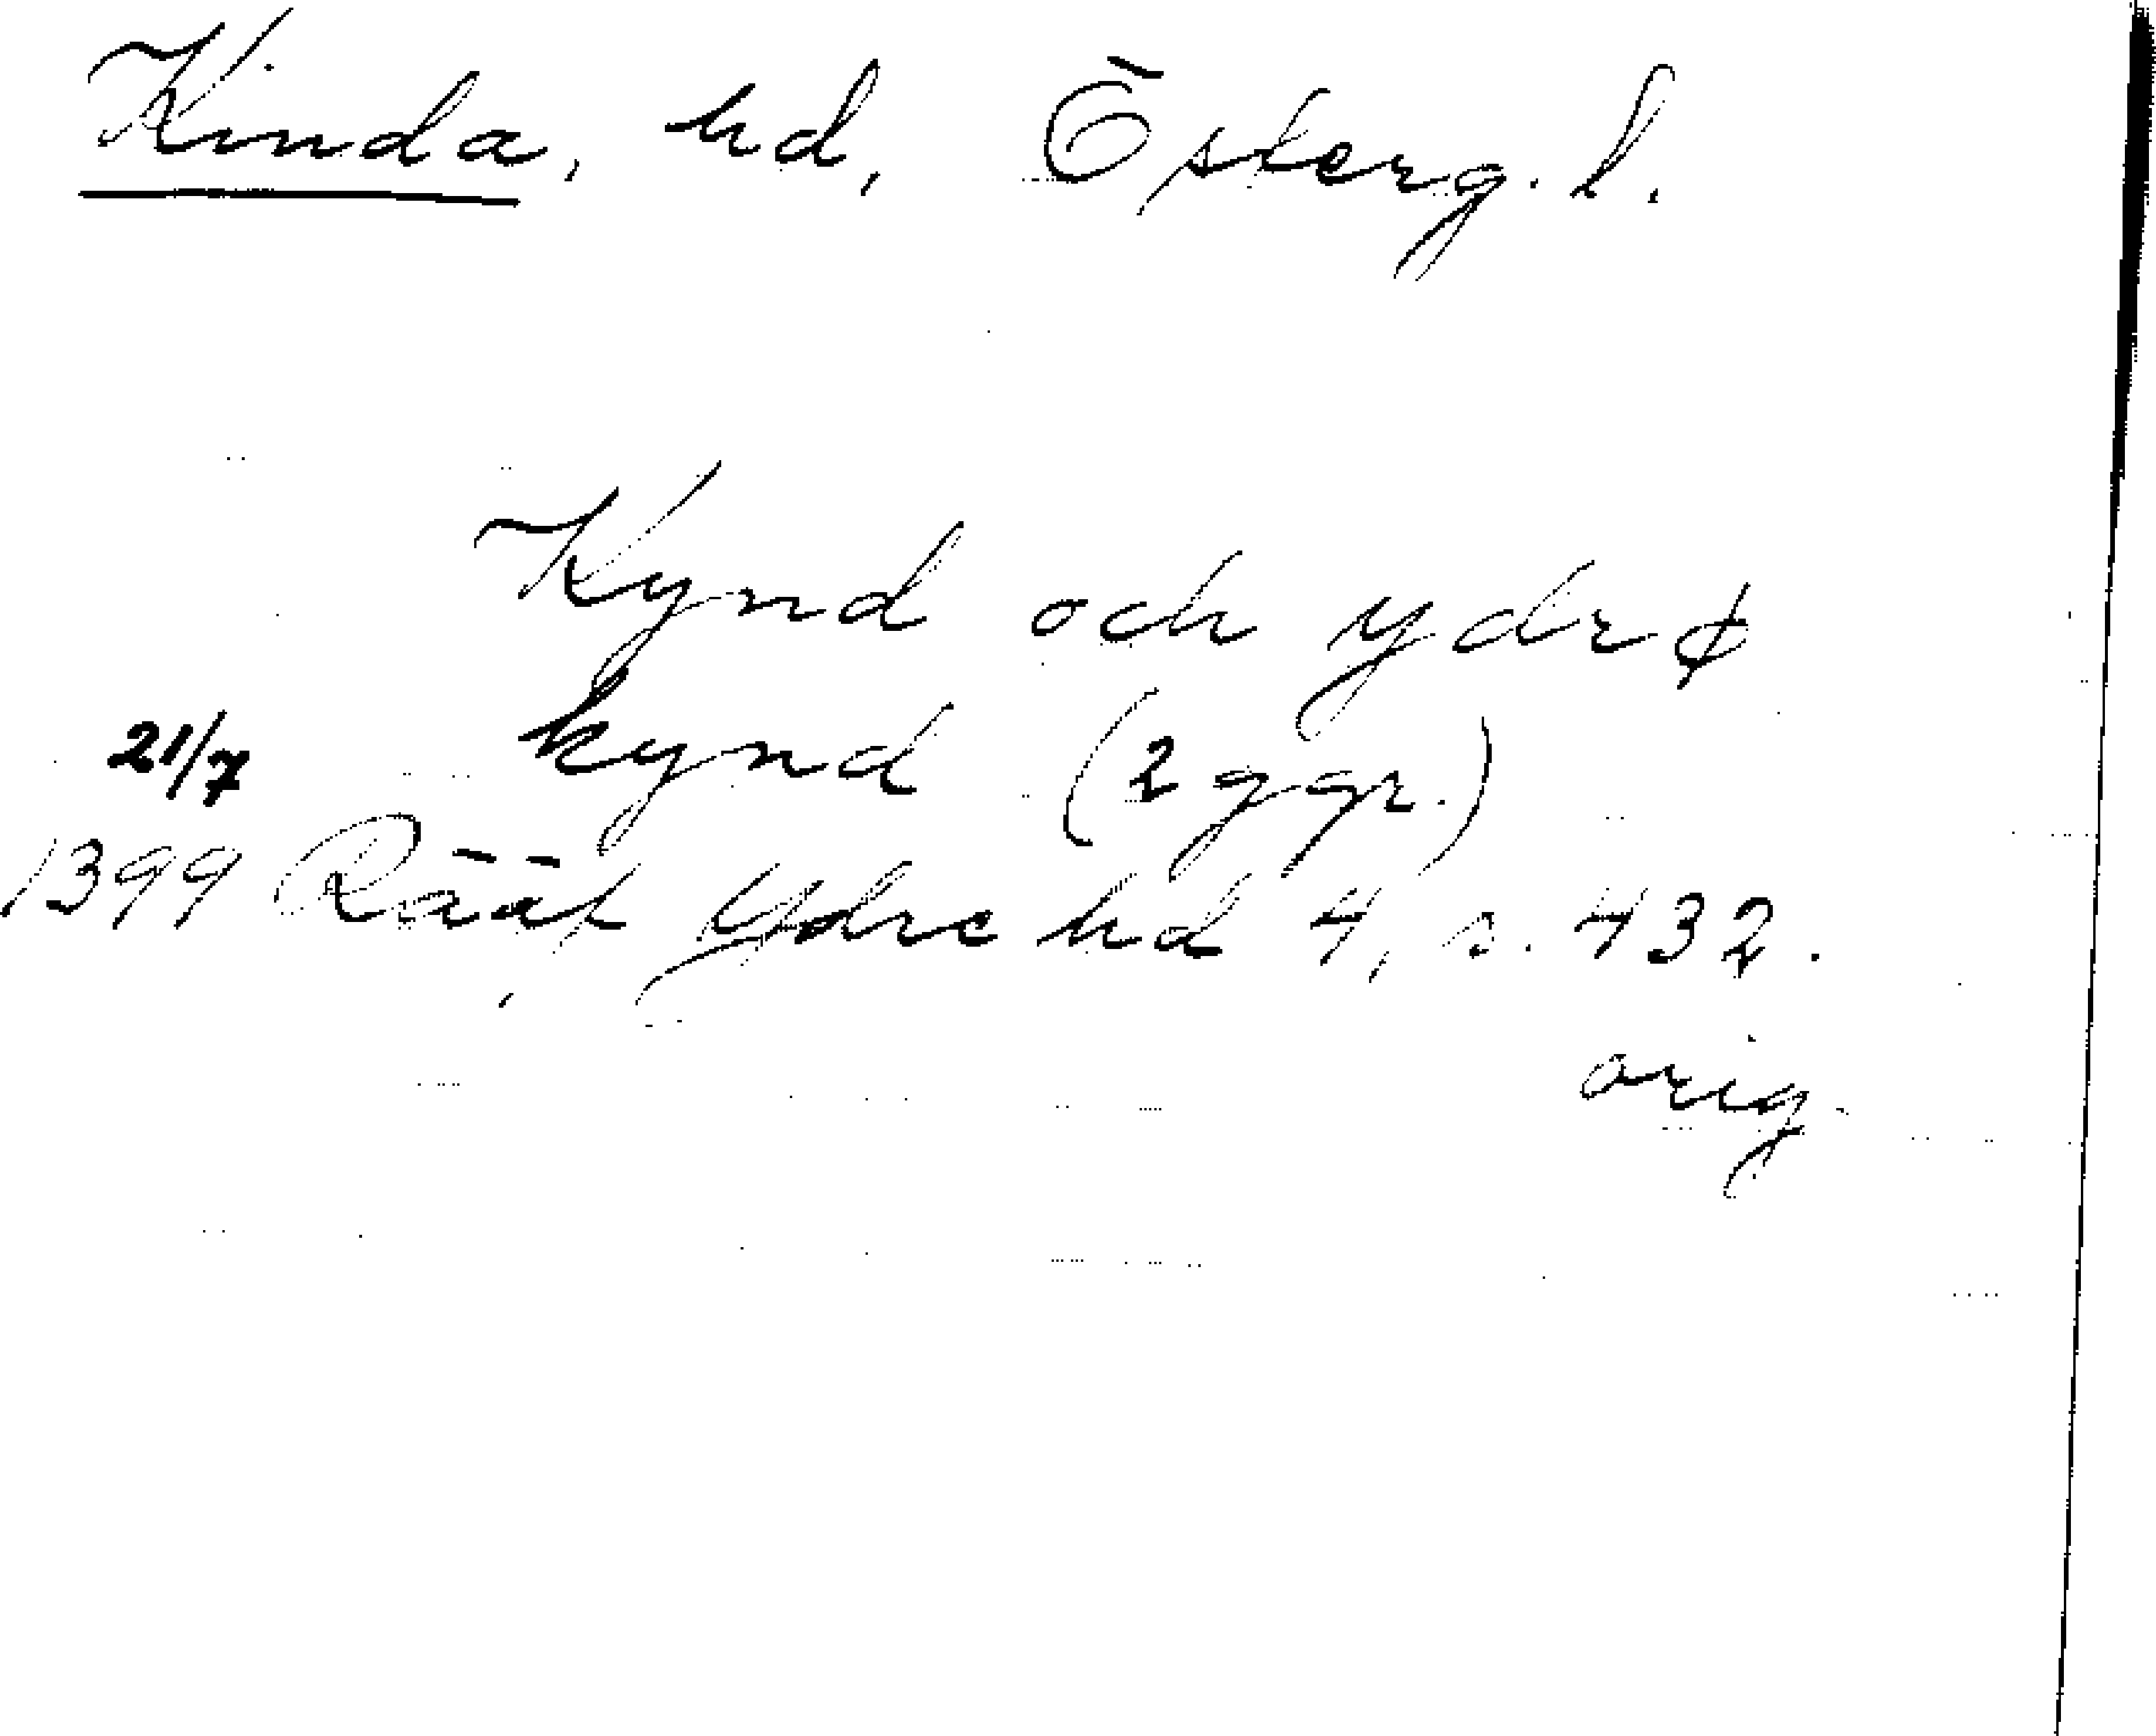 Kinda, hd, Österg. l.
Kynd och ydrø
21/7 kynd (2 ggr.)
1399 Rääf Ydre hd 4, s. 432.
orig.